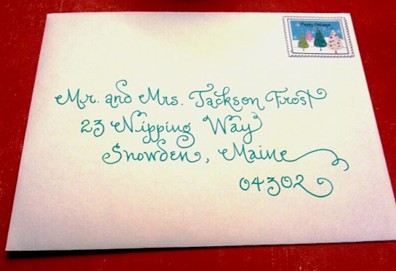 Happy Holidays
Mr. and Mrs. Jackson Frost
23 Nipping Way
Snowden, Maine
04302